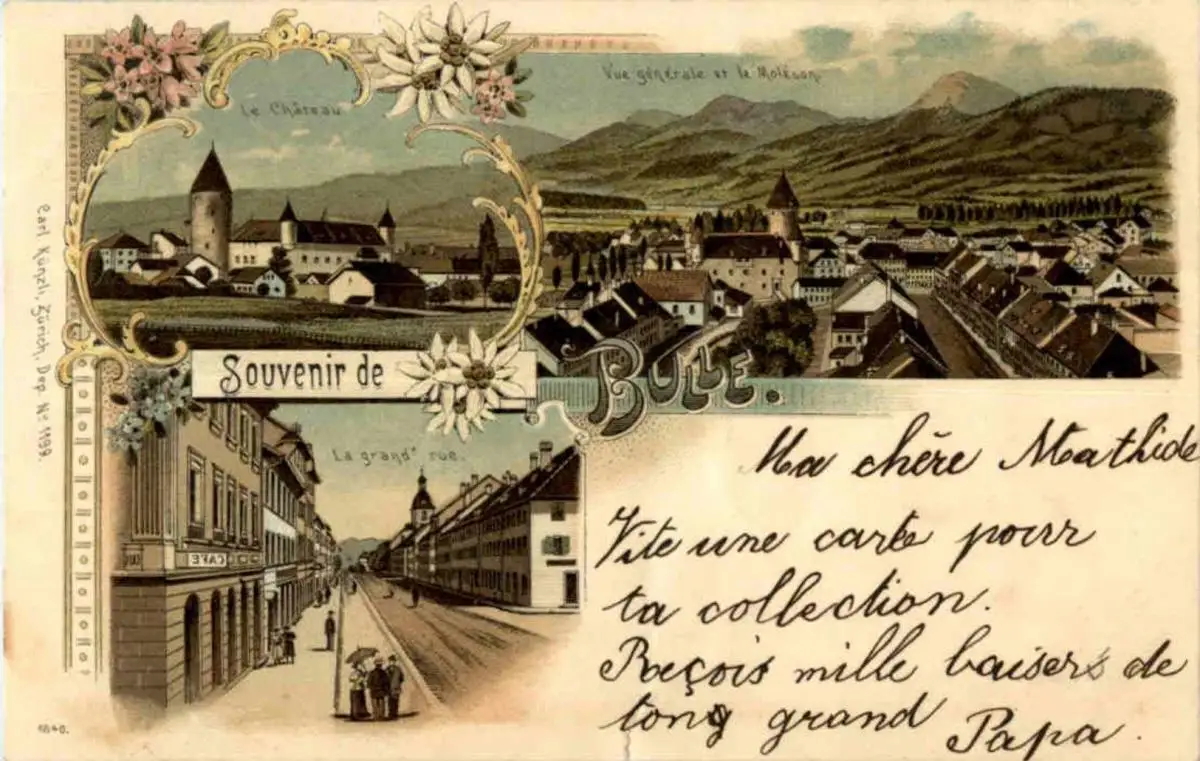 Le Château
Vue générale et le Moléson
Souvenir de
BULLE.
La grand' rue.
CAFÉ
Carl Künzli, Zürich, Dep. No 1199.
1840.
Ma chère Mathide
Vite une carte pour
ta collection.
Reçois mille baisers de
tong grand Papa.